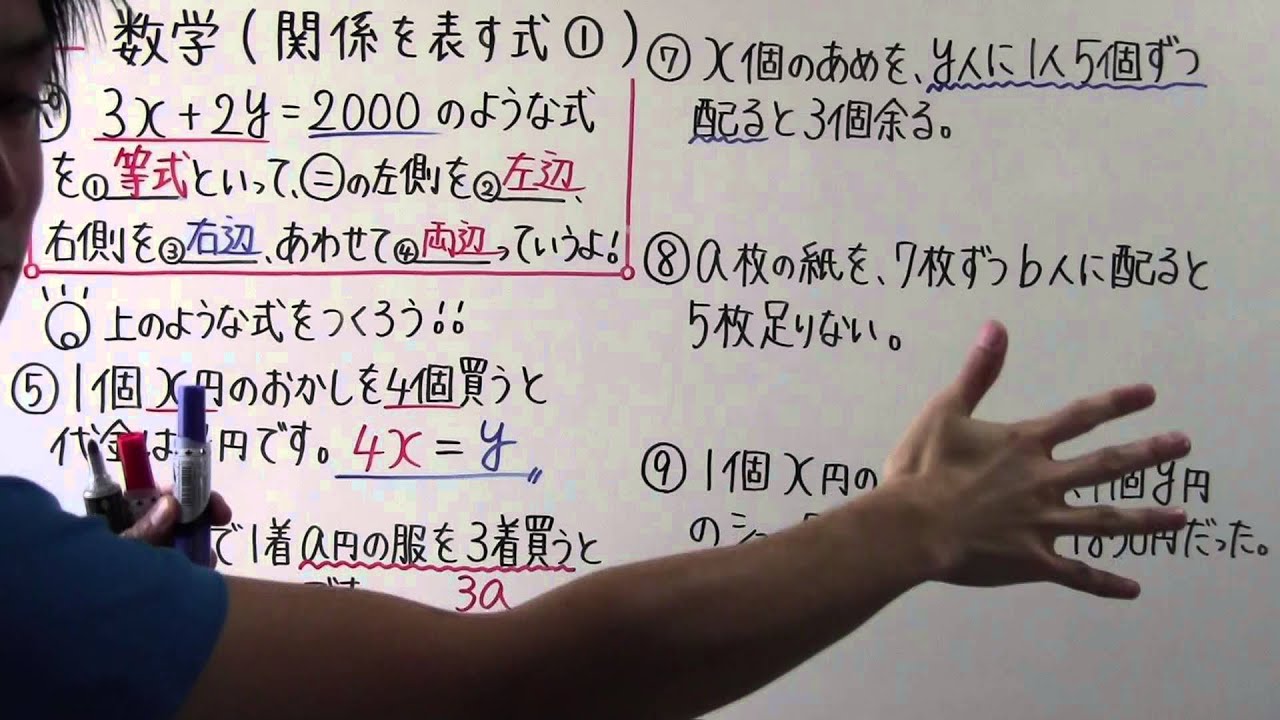 数学(関係を表す式①)
3x+2y=2000のような式
を①等式といって、=の左側を②左辺、
右側を③右辺、あわせて④両辺っていうよ!
上のような式をつくろう!!
⑤1個x円のおかしを4個買うと
代金は 円です。4x=y
で1着a円の服を3着買うと
3a
⑦x個のあめを、y人に1人5個ずつ
配ると3個余る。
⑧a枚の紙を、7枚ずつb人に配ると
5枚足りない。
⑨1個x円の 1個y円
のシュ 円だった。